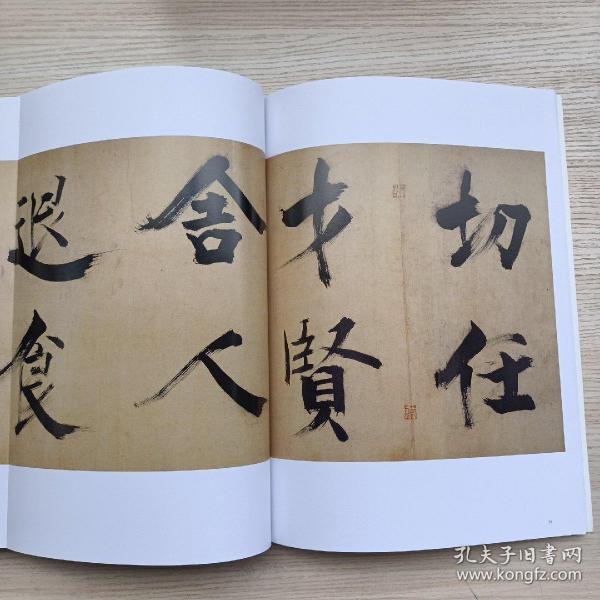 切任
才賢
舍人
退食
孔夫子旧書网
www.kongfz.com